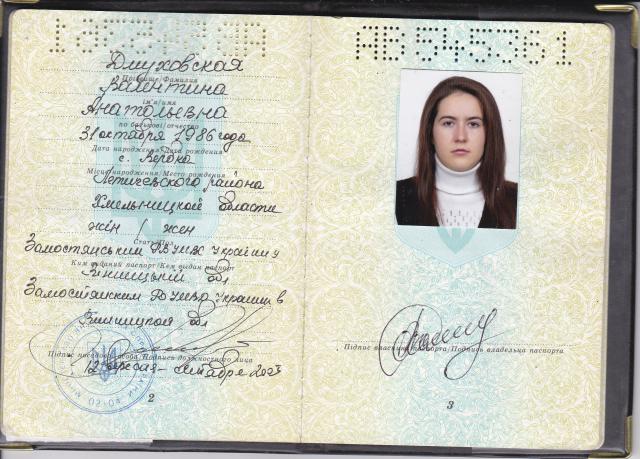 АВ545361
Дмуховская
Прізвище/Фамилия
Валентина
ім'я/имя
Анатольевна
по батькові/отчество
31 октября 1986 года
Дата народження/Дата рождения
с. Вербка
Місце народження/Место рождения
Летичевского района
Хмельницкой области
жін / жен
Стать/Пол
Замостянським РВ УМВС України у
Ким виданий паспорт/Кем выдан паспорт
Вінницькій обл
Замостянским РО УМВД Украины в
Винницкой обл
Підпис посадової особи/Подпись должностного лица
12 вересня - сентября 2003
2
Підпис власника паспорта/Подпись владельца паспорта
3